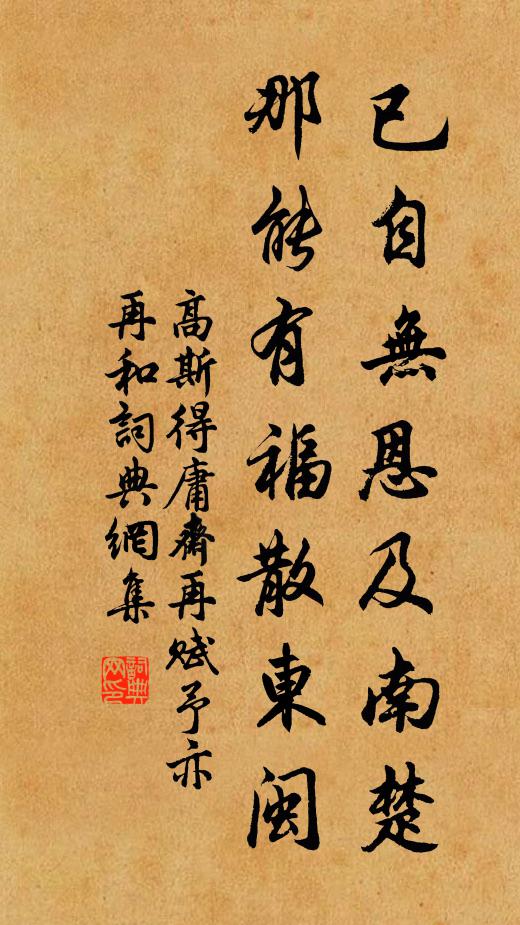 已自無恩及南楚
那能有福散東閩
高斯得庸齋再賦予亦
再和詞典網集
詞典網印